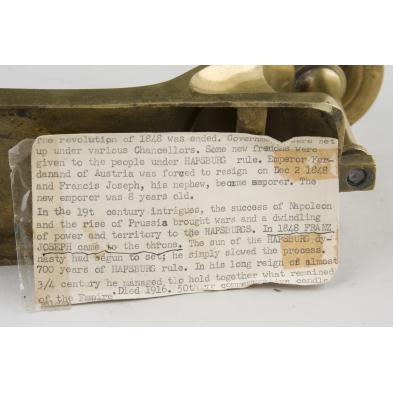 The revolution of 1848 was ended. Governments were set
up under various Chancellors. Some new freedoms were
given to the people under HAPSBURG rule. Emperor Fer-
danand of Austria was forced to resign on Dec 2 1848
and Francis Joseph, his nephew, became emporer. The
new emporer was 8 years old.
In the 19t century intrigues, the success of Napoleon
and the rise of Prussia brought wars and a dwindling
of power and territory to the HAPSBURGS. In 1848 FRANZ
JOSEPH came to the throne. The sun of the HAPSBURG dy-
nasty had begun to set; he simply slowed the process.
700 years of HAPSBURG rule. In his long reign of almost
3/4 century he managed to hold together what remained
of the Empire. Died 1916. 50th commemoration candle